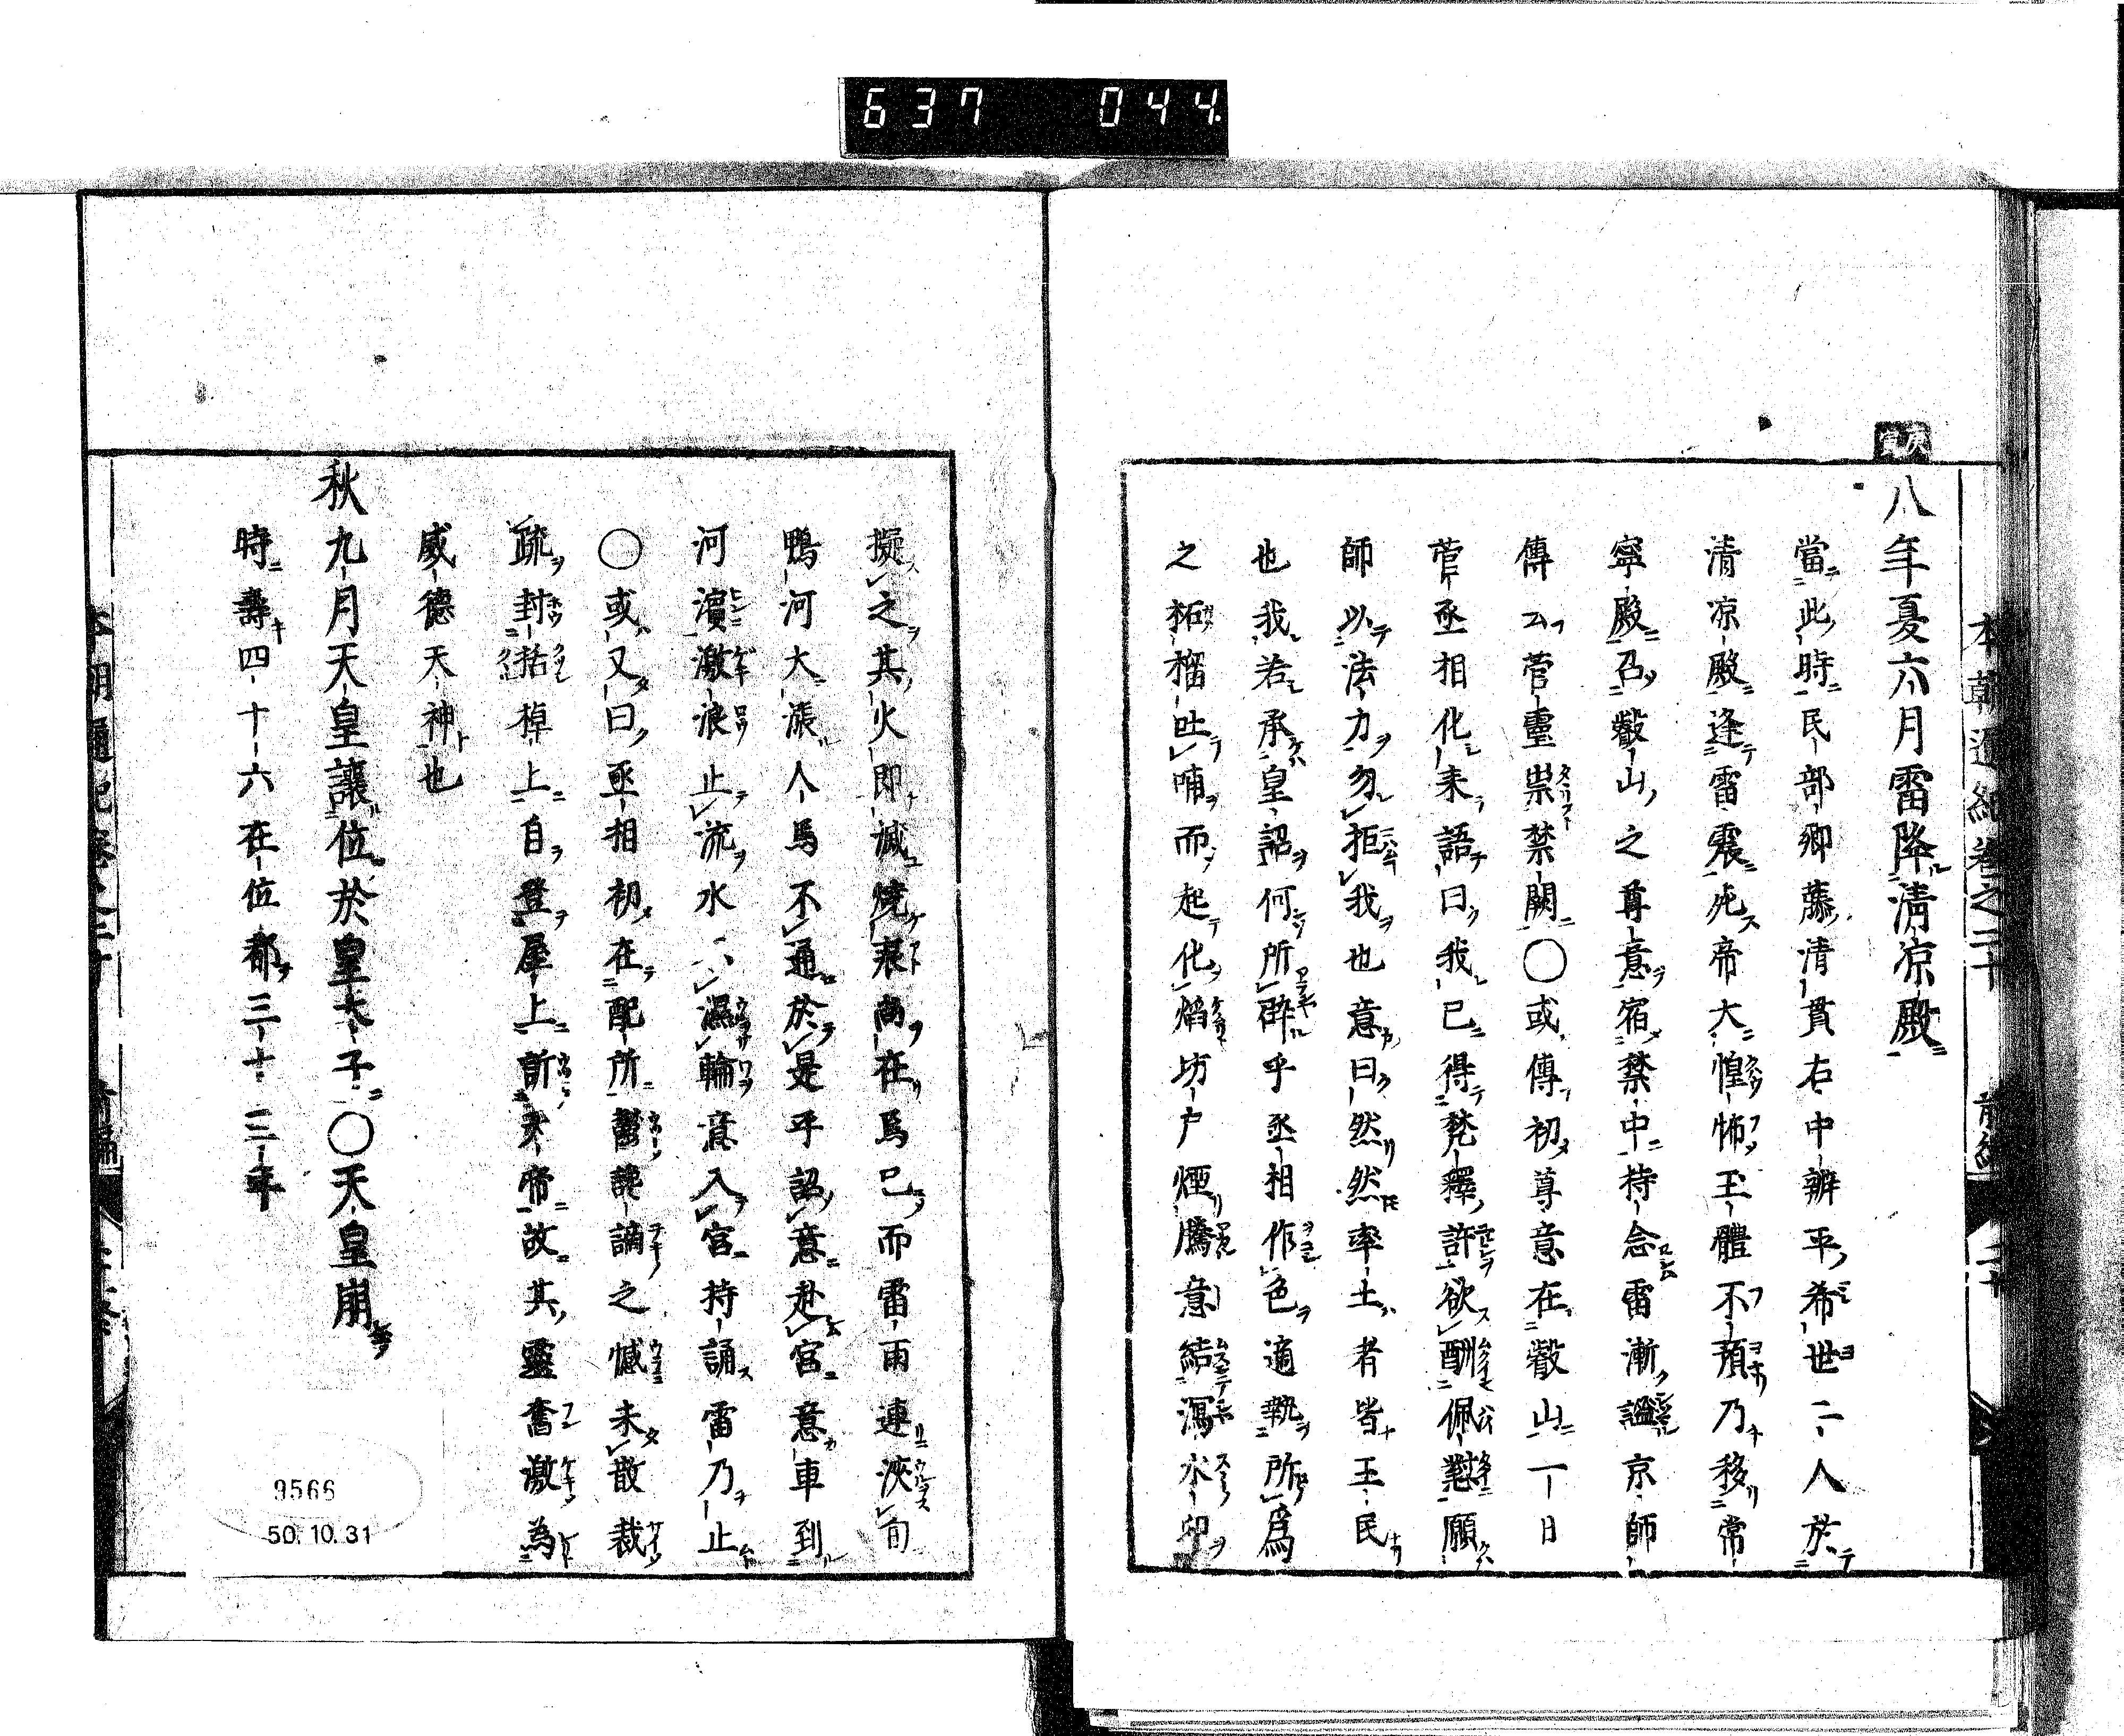 637 044.
本朝通紀卷之二十 前編 二十
庚寅
八年夏六月雷降清凉殿
當此時民部卿藤清貫右中辨平希世二人於
清凉殿逢雷震死帝大惶怖玉體不預乃移常
寧殿召叡山之尊意宿禁中持念雷漸謐京師
傳云菅靈祟禁闕○或傳初尊意在叡山一日
菅丞相化來語曰我已得梵釋許欲酬佩懟願
師以法力勿拒我也意曰然然率土者皆王民
也我若承皇詔何所辭乎丞相作色適執所爲
之柘榴吐哺而起化焰坊戸煙騰意結瀉水印
擬之其火即滅燒痕尚在焉已而雷雨連浹旬
鴨河大漲人馬不通於是乎詔意赴宮意車到
河濱激浪止流水不濕輪意入宮持誦雷乃止
○或又曰丞相初在配所鬱讒謫之憾未散裁
疏封括棹上自登屋上訴天帝故其靈奮激為
威德天神也
秋九月天皇讓位於皇太子○天皇崩
時壽四十六在位都三十三年
本朝通紀卷之二十 前編
9566
50.10.31